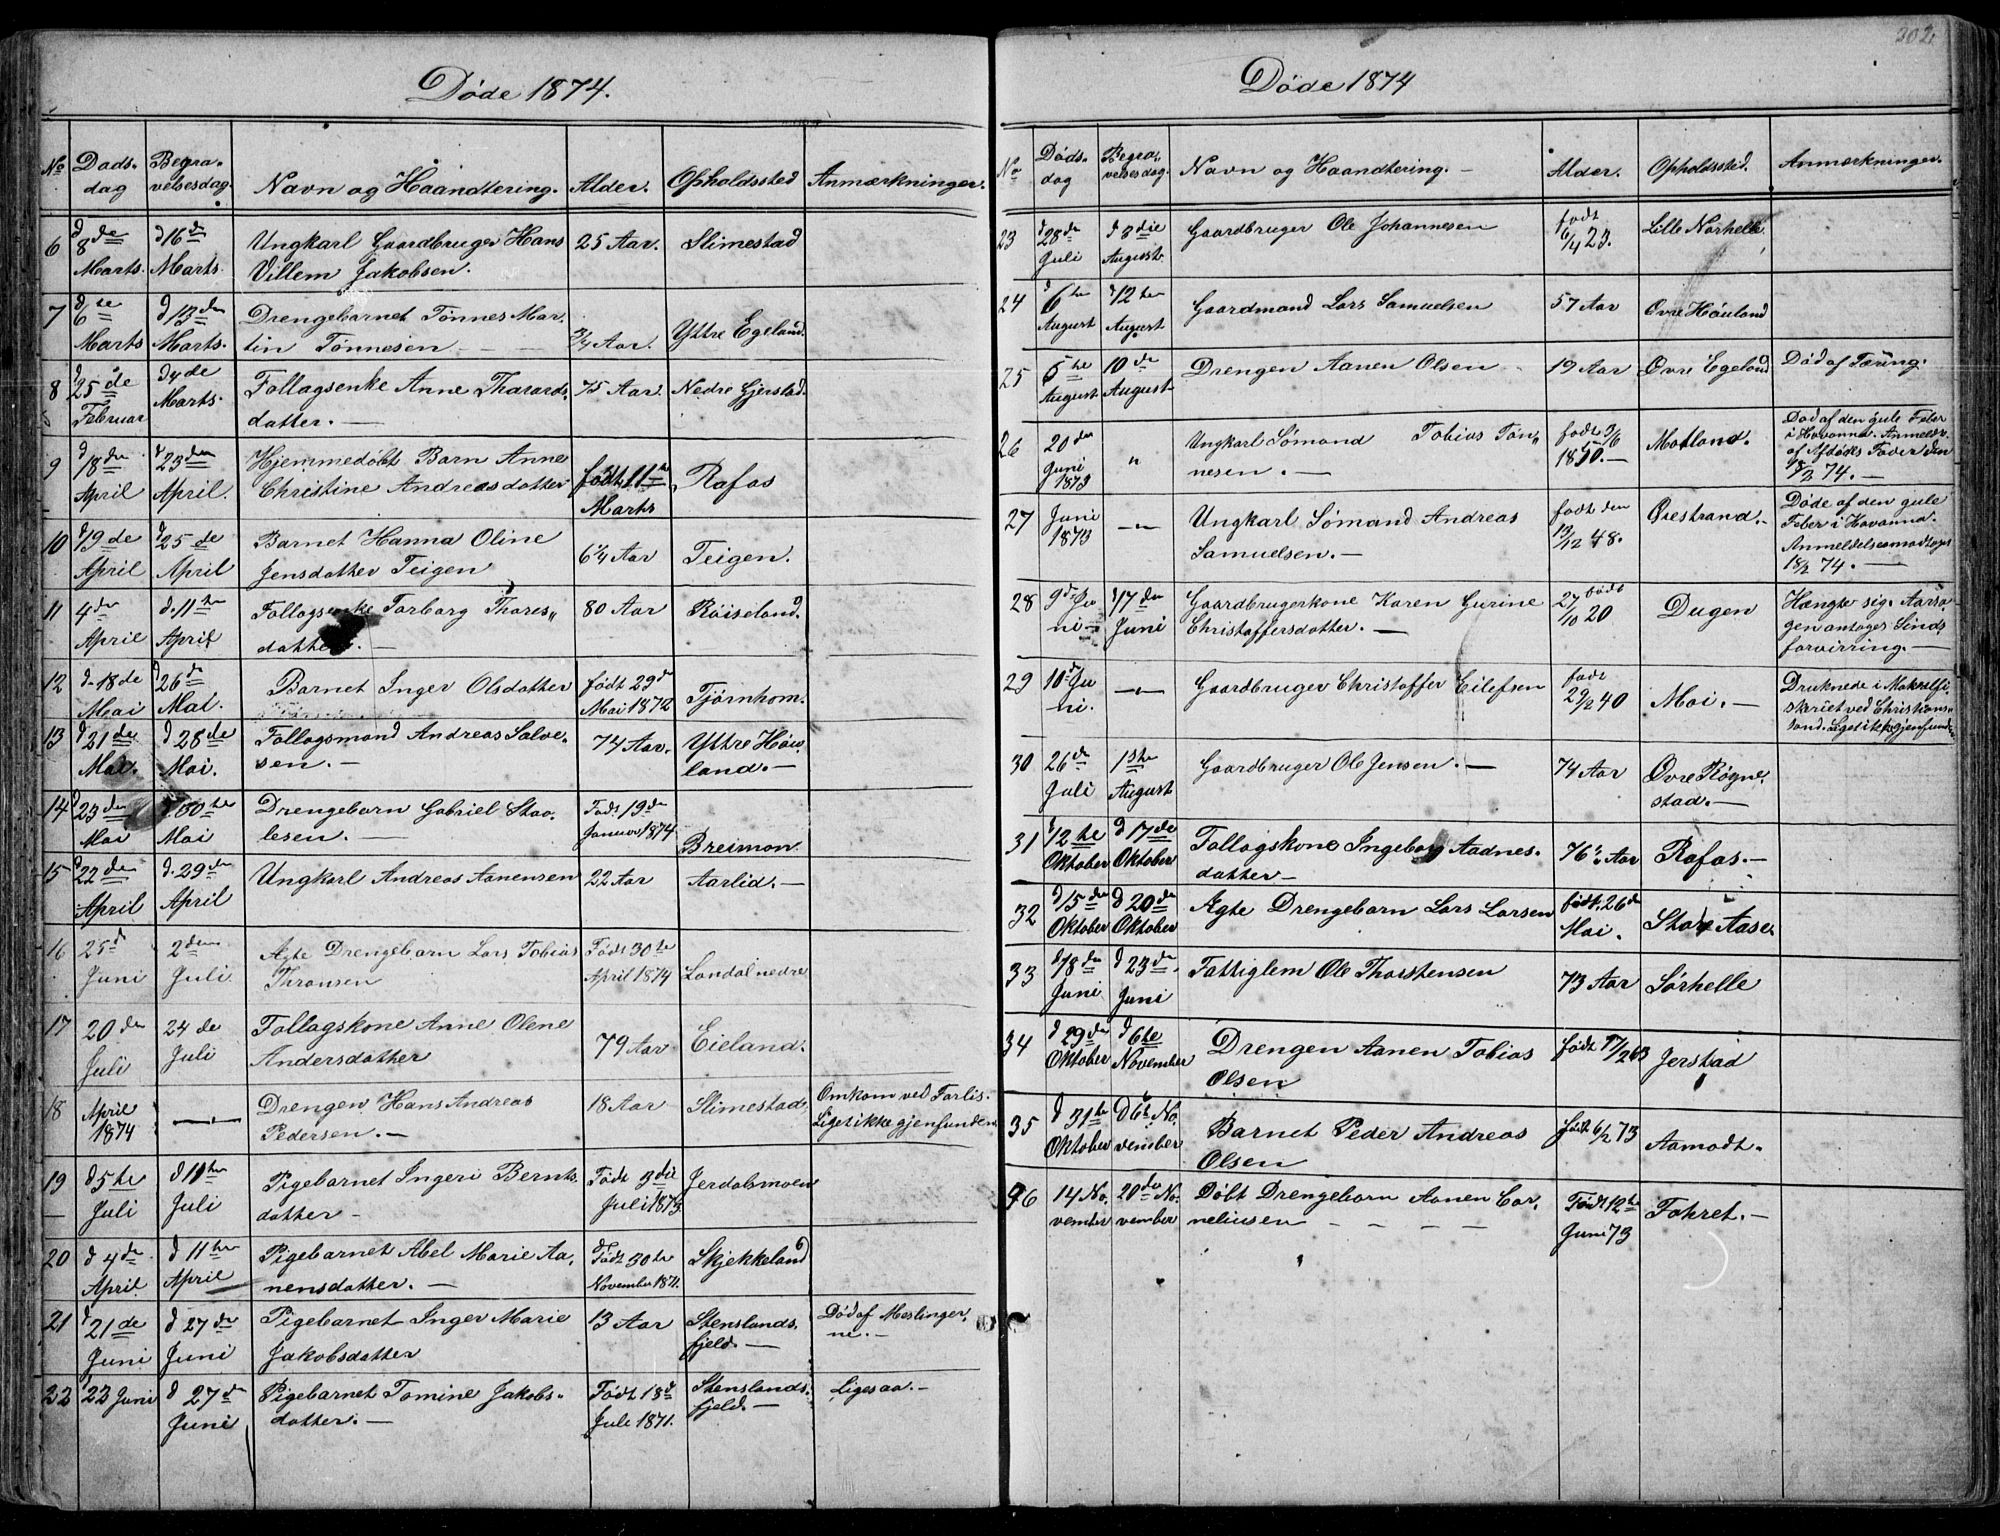 Døde 1874.
No Døds-dag Begra-velsesdag. Navn og Haandtering. Alder. Opholdssted Anmærkninger.
6 d 8de d 16de Ungkarl Gaardbruger Hans 25 Aar. Slimestad
Marts. Marts. Villem Jakobsen.
7 d 6te d 13den Drengebarnet Tønnes Mar- 3/4 Aar. Yttre Egeland.
Marts Marts. tin Tønnesen —
8 d 25de d 4de Follagsenke Anne Tharald- 75 Aar. Nedre Gjerstad.
Februar Marts. datter. —
9 d 18de d 23den Hjemmedøbt Barn Anne født 11te Rafos
April April. Christine Andreasdatter Marts
10 d 19de d 25de Barnet Hanna Oline 6 1/4 Aar Teigen.
April April Jensdatter Teigen
11 4de d. 11te Follagsenke Torborg Thores- 80 Aar Røiseland.
April April datter. —
12 d. 18de d 26de Barnet Inger Olsdatter født 29de Tjørnhom.
Mai Mai. Mai 1872
13 d 21de d 28de Follagsmand Andreas Salve- 74 Aar. Yttre Høu-
Mai. Mai. sen. — land. —
14 d 23de d 30te Drengebarn Gabriel Staa- Født 19de
Mai Mai lesen. — Januar 1874 Breimon
15 d 22de d. 29de Ungkarl Andreas Aanensen 22 Aar Aarlid. —
April April
16 25d 2den Ægte Drengebarn Lars Tobias Født 30te
Juni Juli Thronsen April 1874 Londal nedre
17 20de 24de Follagskone Anne Olene 79 Aar Eieland.
Juli Juli Andersdatter
18 April — " — Drengen Hans Andreas 18 Aar Slimestad, Omkom ved Forlis.
1874 Pedersen. — Liget ikke gjenfunden
19 d 5te d 11te Pigebarnet Ingeri Bernts- Født 3die Jerdalsmoen
Juli Juli datter — Juli 1873.
20 d 4de d 11te Pigebarnet Abel Marie Aa- Født 30te Skjekkeland
April April nensdatter. — November 1871.
21 d 21de d 27de Pigebarnet Inger Marie 13 Aar Stenslands- Død af Meslinger-
Juni Juni Jakobsdatter fjeld. — ne. —
22 d 22 Juni d 27de Pigebarnet Tomine Jakobs- Født 18d Stenslands- Ligesaa. —
Juni datter. — Juli 1871. fjeld. —
202.
Døde 1874
No Døds-dag Begra-velsesdag. Navn og Haandtering. — Alder. Opholdssted. Anmærkninger.
23 d 28de d 3die Gaardbruger Ole Johannesen født Lille Nørhelle
Juli August 6/4 23.
24 d 6te d 12te Gaardmand Lars Samuelsen 57 Aar Øvre Høuland
August August
25 d 5te 10de Drengen Aanen Olsen 19 Aar Øvre Egeland Død af Tæring.
August August
26 20de " Ungkarl Sømand Tobias Tøn- født 3/6 Motland. Død af den gule Feber
Juni 1873 nesen. — 1850. — i Havanna. Anmeldt
af Afdødes Fader den
18/2 74. —
27 Juni — " — Ungkarl Sømand Andreas født den Øiestrand. — Døde af den gule
1873 Samuelsen. — 13/12 48. Feber i Havanna.
Anmeldelse modtoges
18/2 74. —
28 9de Ju- d 17de Gaardbrugerkone Karen Gurine født 27/10 20 Dugen Hængte sig. Aarsa-
ni — Juni Christoffersdatter. — gen antages Sinds-
forvirring. —
29 10de Ju- — " — Gaardbruger Christoffer Eilefsen født Moi. — Druknede i Makrelfi-
ni. 29/2 40 skeriet ved Christians-
sand. Liget ikke gjenfunden
30 26de 1ste Gaardbruger Ole Jensen. — 74 Aar Øvre Røgne-
Juli August stad. —
31 d 12te d 17de Follagskone Ingeborg Aadnes- 76 1/2 Aar Rafos. —
Oktober Oktober datter —
32 d 15de d 20de Ægte Drengebarn Lars Larsen født. 26de Store Aase.
Oktober Oktober Mai.
33 d 18de d 23de Fattiglem Ole Thorstensen 73 Aar Sørhelle
Juni Juni
34 d 29de d 6te Drengen Aanen Tobias født 17/2 63 Jerstad
Oktober November Olsen
35 d 31te d 6te No- Barnet Peder Andreas født 6/2 73 Aamodt.
Oktober vember Olsen
36 14 No- 20de No- Døbt Drengebarn Aanen Cor- Født 12te Fokret. —
vember vember neliusen — — — — Juni 73